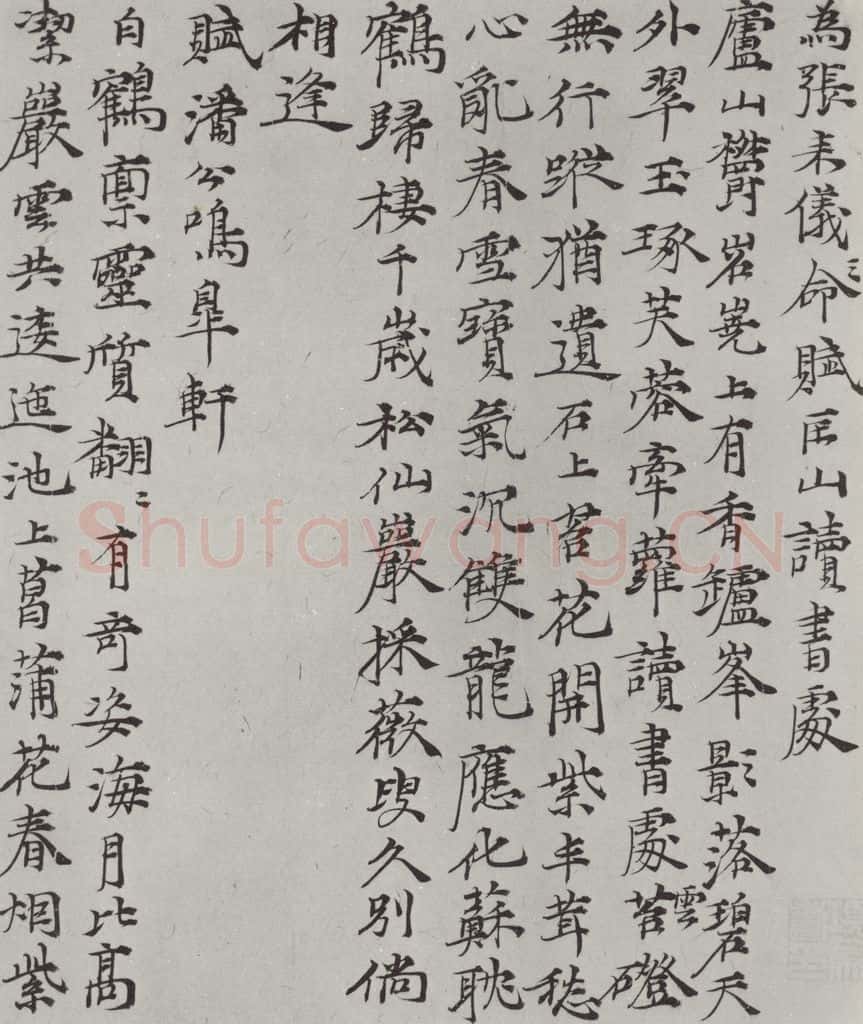 為張來儀〻命賦匡山讀書處
廬山欝岧嶤上有香鑪峯影落碧天
外翠玉琢芙蓉牽蘿讀書處雲苔磴
無行蹤猶遺石上苔花開紫丰茸愁
心亂春雪寶氣沉雙龍應化蘇耽
鶴歸棲千歲松仙巖採薇叟久別倘
相逢
賦潘公鳴皐軒
白鶴稟靈質翩〻有奇姿海月比高
潔巖雲共逶迤池上菖蒲花春烟紫
Shufawang.CN